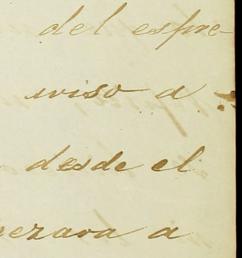 del espre-
aviso a
desde el
pezara a